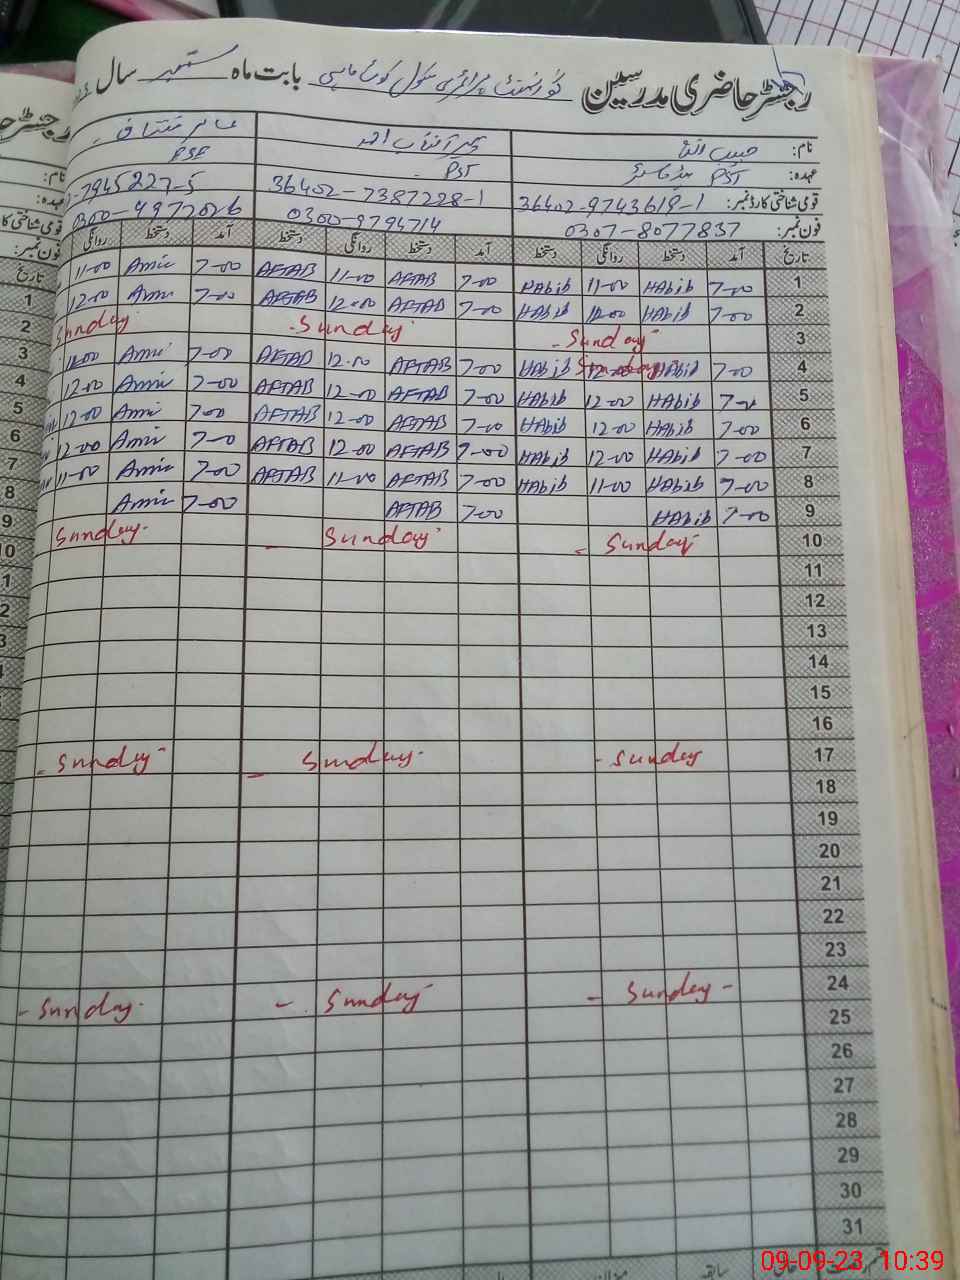 رجسٹر حاضری مدرسین گورنمنٹ پرائمری سکول کوٹ ماہی بابت ماہ ستمبر سال
نام: حبیب اللہ محمد آفتاب احمد عامر مشتاق
عہدہ: PST ہیڈ ماسٹر PST PST
قومی شناختی کارڈ نمبر: 36402-9743619-1 36402-7387228-1 7945227-5
فون نمبر: 0307-8077837 0300-9794714 0300-4977026
تاریخ آمد دستخط روانگی دستخط آمد دستخط روانگی دستخط آمد دستخط روانگی
1 7-00 Habib 11-00 Habib 7-00 AFTAB 11-00 AFTAB 7-00 Amir 11-00
2 7-00 Habib 12-00 Habib 7-00 AFTAB 12-00 AFTAB 7-00 Amir 12-00
3 - Sunday - Sunday Sunday
4 7-00 Habib Sunday 12-00 Habib 7-00 AFTAB 12-00 AFTAB 7-00 Amir 12-00
5 7-00 Habib 12-00 Habib 7-00 AFTAB 12-00 AFTAB 7-00 Amir 12-00
6 7-00 Habib 12-00 Habib 7-00 AFTAB 12-00 AFTAB 7-00 Amir 12-00
7 7-00 Habib 12-00 Habib 7-00 AFTAB 12-00 AFTAB 7-00 Amir 12-00
8 7-00 Habib 11-00 Habib 7-00 AFTAB 11-00 AFTAB 7-00 Amir 11-00
9 7-00 Habib 7-00 AFTAB 7-00 Amir
10 - Sunday - Sunday Sunday-
11
12
13
14
15
16
17 - Sunday - Sunday - Sunday
18
19
20
21
22
23
24 - Sunday - - Sunday - Sunday-
25
26
27
28
29
30
31
09-09-23, 10:39